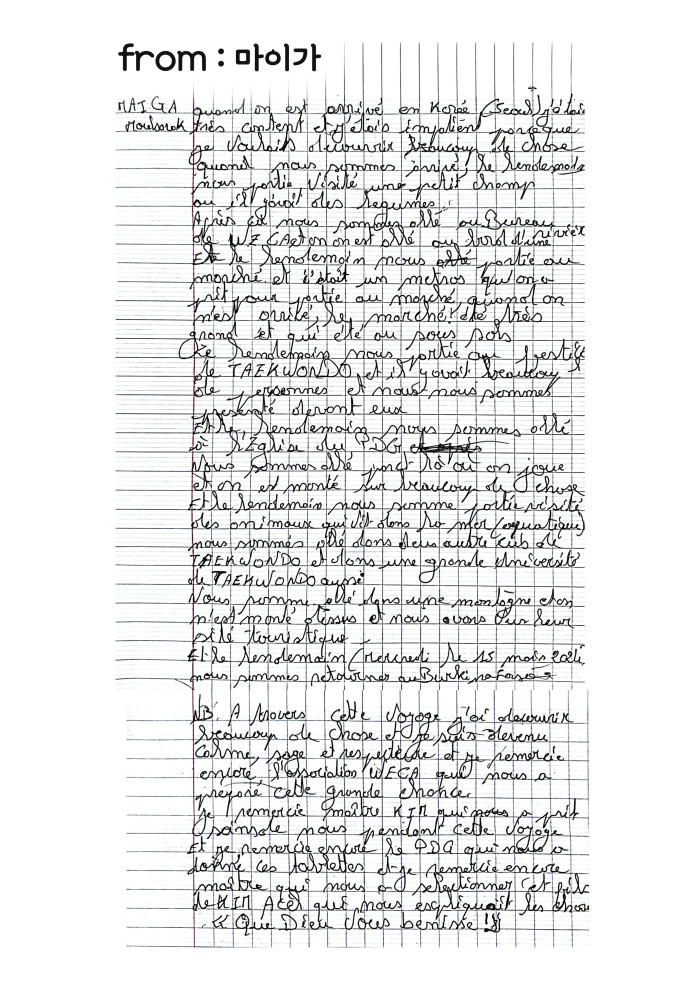 from : 마이가
MAIGA quand on est arrivé en Korée (Seoul) j'étais
très content et j'étais impatient parceque
je voulais découvrir beaucoup de chose
quand nous sommes arrivé, le lendemain
nous partie visité une petit champ
ou il y avait des legumes.
Après ça nous sommes allé au Bureau
de WECA et on on est allé au bord d'une rivière
Et le lendemain nous partie au
marché et c'était un metros qu'on a
prit pour partie au marché, quand on
n'est arrivé, le marché été très
grand et qui été au sous sols
Le lendemain nous partie au
de TAEKWONDO et il y avait beaucoup
de personnes et nous nous sommes
presenté devant eux
Et le lendemain nous sommes allé
à l'Église du PDG
Nous sommes allé là où on joue
et on est monté sur beaucoup de chose
Et le lendemain nous somme partie visité
des animaux qui vit dans la mer (aquatique)
nous sommes allé dans deux autre club de
TAEKWONDO et dans une grande Université
de TAEKWONDO aussi
Nous somme allé dans une montagne et on
n'est monté dessus et nous avons leur
sité touristique
Et le lendemain (mercredi le 15
nous sommes retourner au Burkina Faso
NB: A travers cette voyage j'ai découvrir
beaucoup de chose et je suis devenu
calme, sage et et je remercie
encore l'association WECA qui nous a
preparé cette grande chance.
je remercie maître KIM qui nous a prit
soin de nous pendant cette voyage
Et je remercie encore le PDG qui nous a
donné ces tablettes et je remercie encore
maître qui nous a selectionner et
de KIM qui nous expliquait les chose
« Que Dieu vous benisse !! »